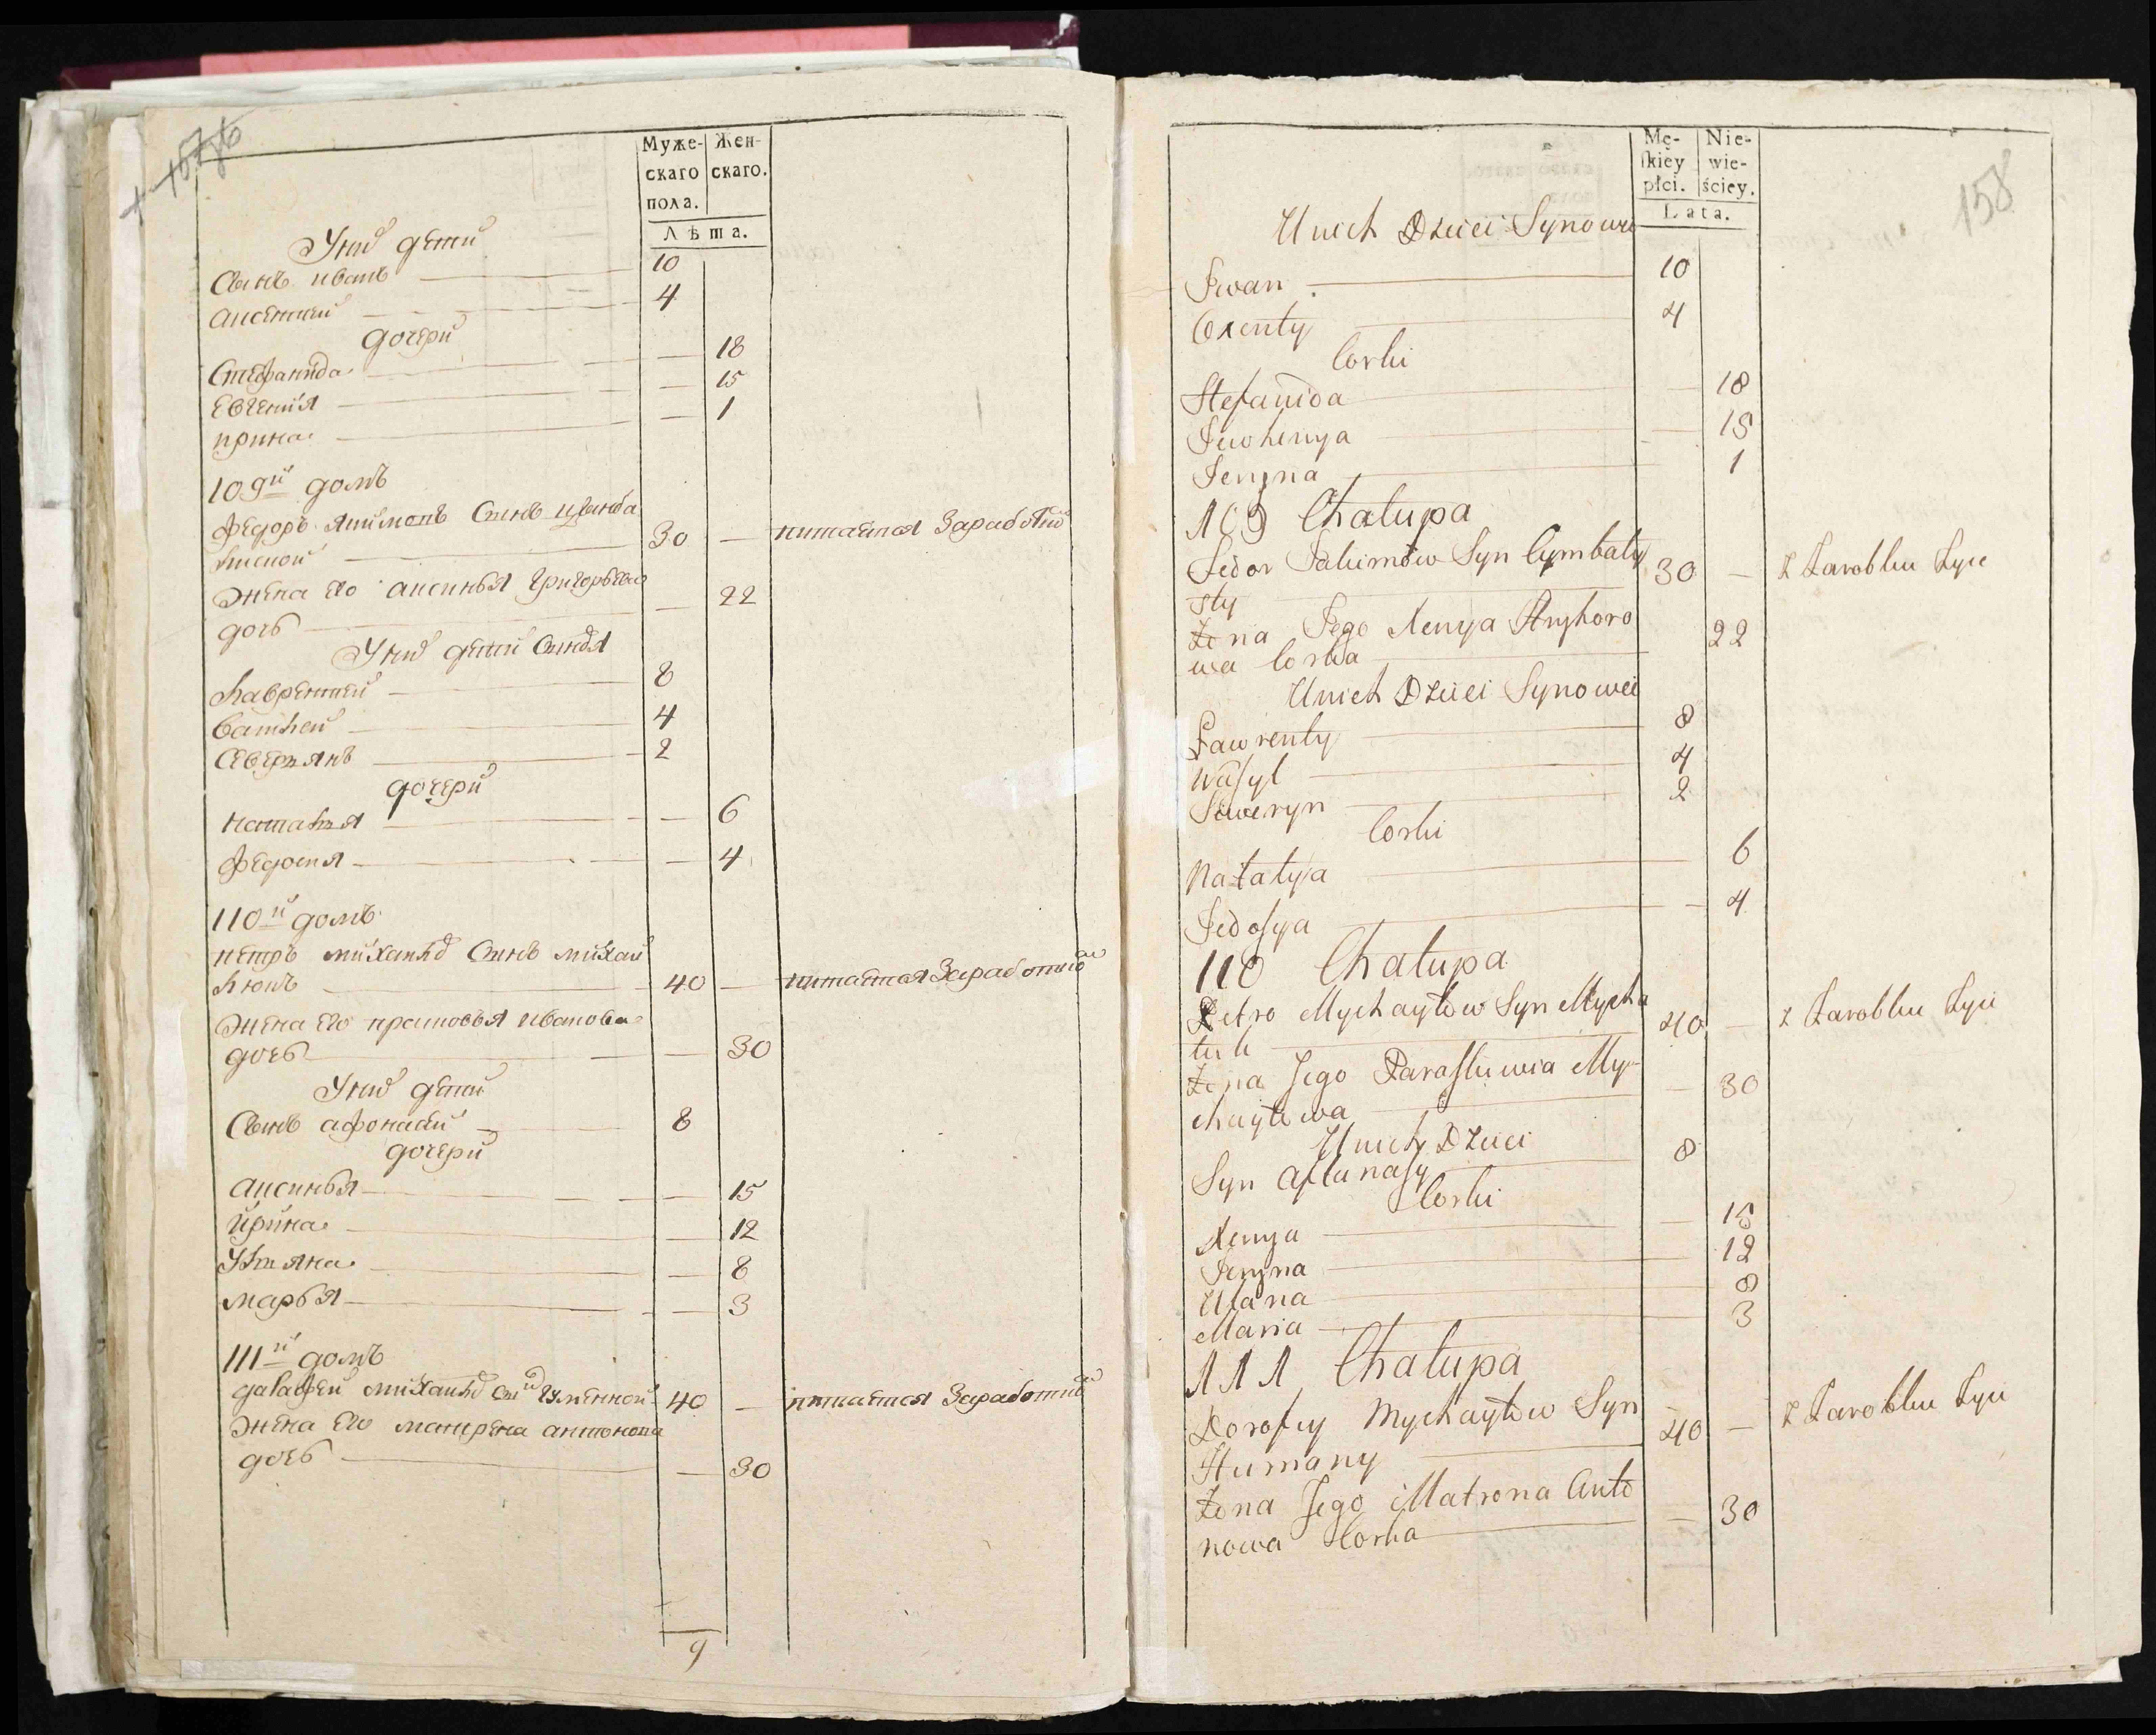 Муже-
скаго
пола.
Жен-
скаго.
Лѣта.
У них дети
Сынъ иванъ 10
аксентей 4
дочери
Стефанида — 18
Евгения — 15
ирина — 1
109й домъ
Федоръ Якимовъ Сынъ цымба
листой 30 — питается Заработкой
Жена Его аксинья Григорьева
дочь — 22
У них детей Сыновья
Лаврентей 8
Василей 4
Северянъ 2
дочери
наталья — 6
федосья — 4
110й домъ
петръ михайлов Сынъ михай
люкъ 40 — питается Заработкой
Жена Его прасковья Иванова
дочь — 30
У них дети
Сынъ афонасей 8
дочери
аксинья — 15
Ирина — 12
Ульяна — 8
марья — 3
111й домъ
дарафей михайлов сын гуменной 40 — питается Заработкой
Жена Его матрена антонова
дочь — 30
9
158
Mę-
skiey
płci.
Nie-
wie-
ściey.
Lata.
U nich Dzieci Synowie
Iwan 10
Oxenty 4
Corki
Stefanida — 18
Jewhenya — 15
Jeryna 1
109 Chałupa
Fedor Jakimow Syn Cymbały
sty 30 — z Zarobku Żyie
Żona Jego Xenya Hryhoro
wa Corka 22
U nich Dzieci Synowie
Ławrenty 8
Wasyl 4
Seweryn 2
Corki
Natałya 6
Fedosya — 4
110 Chałupa
Petro Mychayłow Syn Mycha
luk 40 — z Zarobku Żyie
Żona Jego Paraskiwia My-
chayłowa — 30
U nich Dzieci
Syn Aftanasy 8
Corki
Xenya — 15
Jeryna — 12
Ulana 8
Maria 3
111 Chałupa
Dorofey Mychayłow Syn
Humany 40 — z Zarobku Żyie
Żona Jego Matrona Anto
nowa Corka — 30